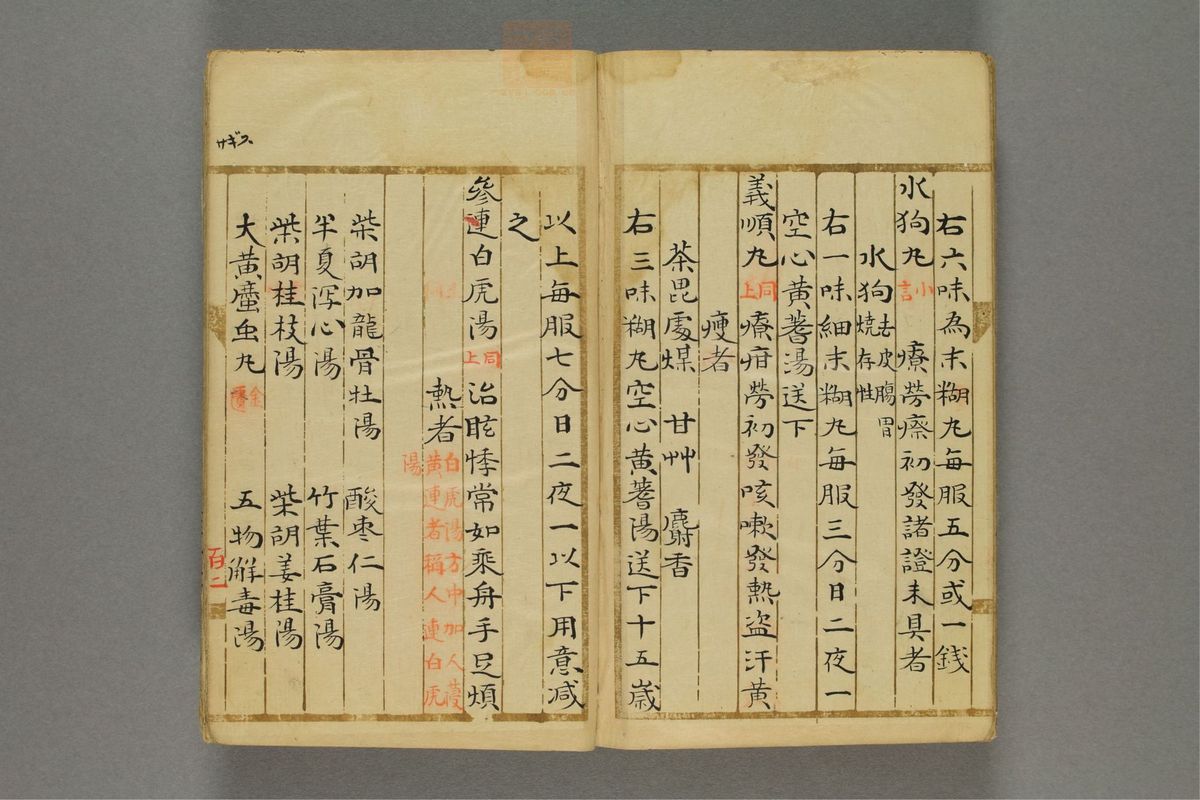 右六味為末糊丸毎服五分或一錢
水狗丸 小言 療勞瘵初發諸證未具者
水狗 去皮腸胃 燒存性
右一味細末糊丸毎服三分日二夜一
空心黄蓍湯送下
義順丸 同上 療疳勞初發咳嗽發熱盗汗黄
瘦者
茶毘處煤 甘艸 麝香
右三味糊丸空心黄蓍湯送下十五歳
以上毎服七分日二夜一以下用意减
之
參連白虎湯 同上 治眩悸常如乘舟手足煩
熱者 白虎湯方中加人葠黄連者稱人連白虎湯
柴胡加龍骨牡湯 酸枣仁湯
半夏泻心湯 竹葉石膏湯
柴胡桂枝湯 柴胡姜桂湯
大黄䗪虫丸 金匱 五物解毒湯
サギス
百二